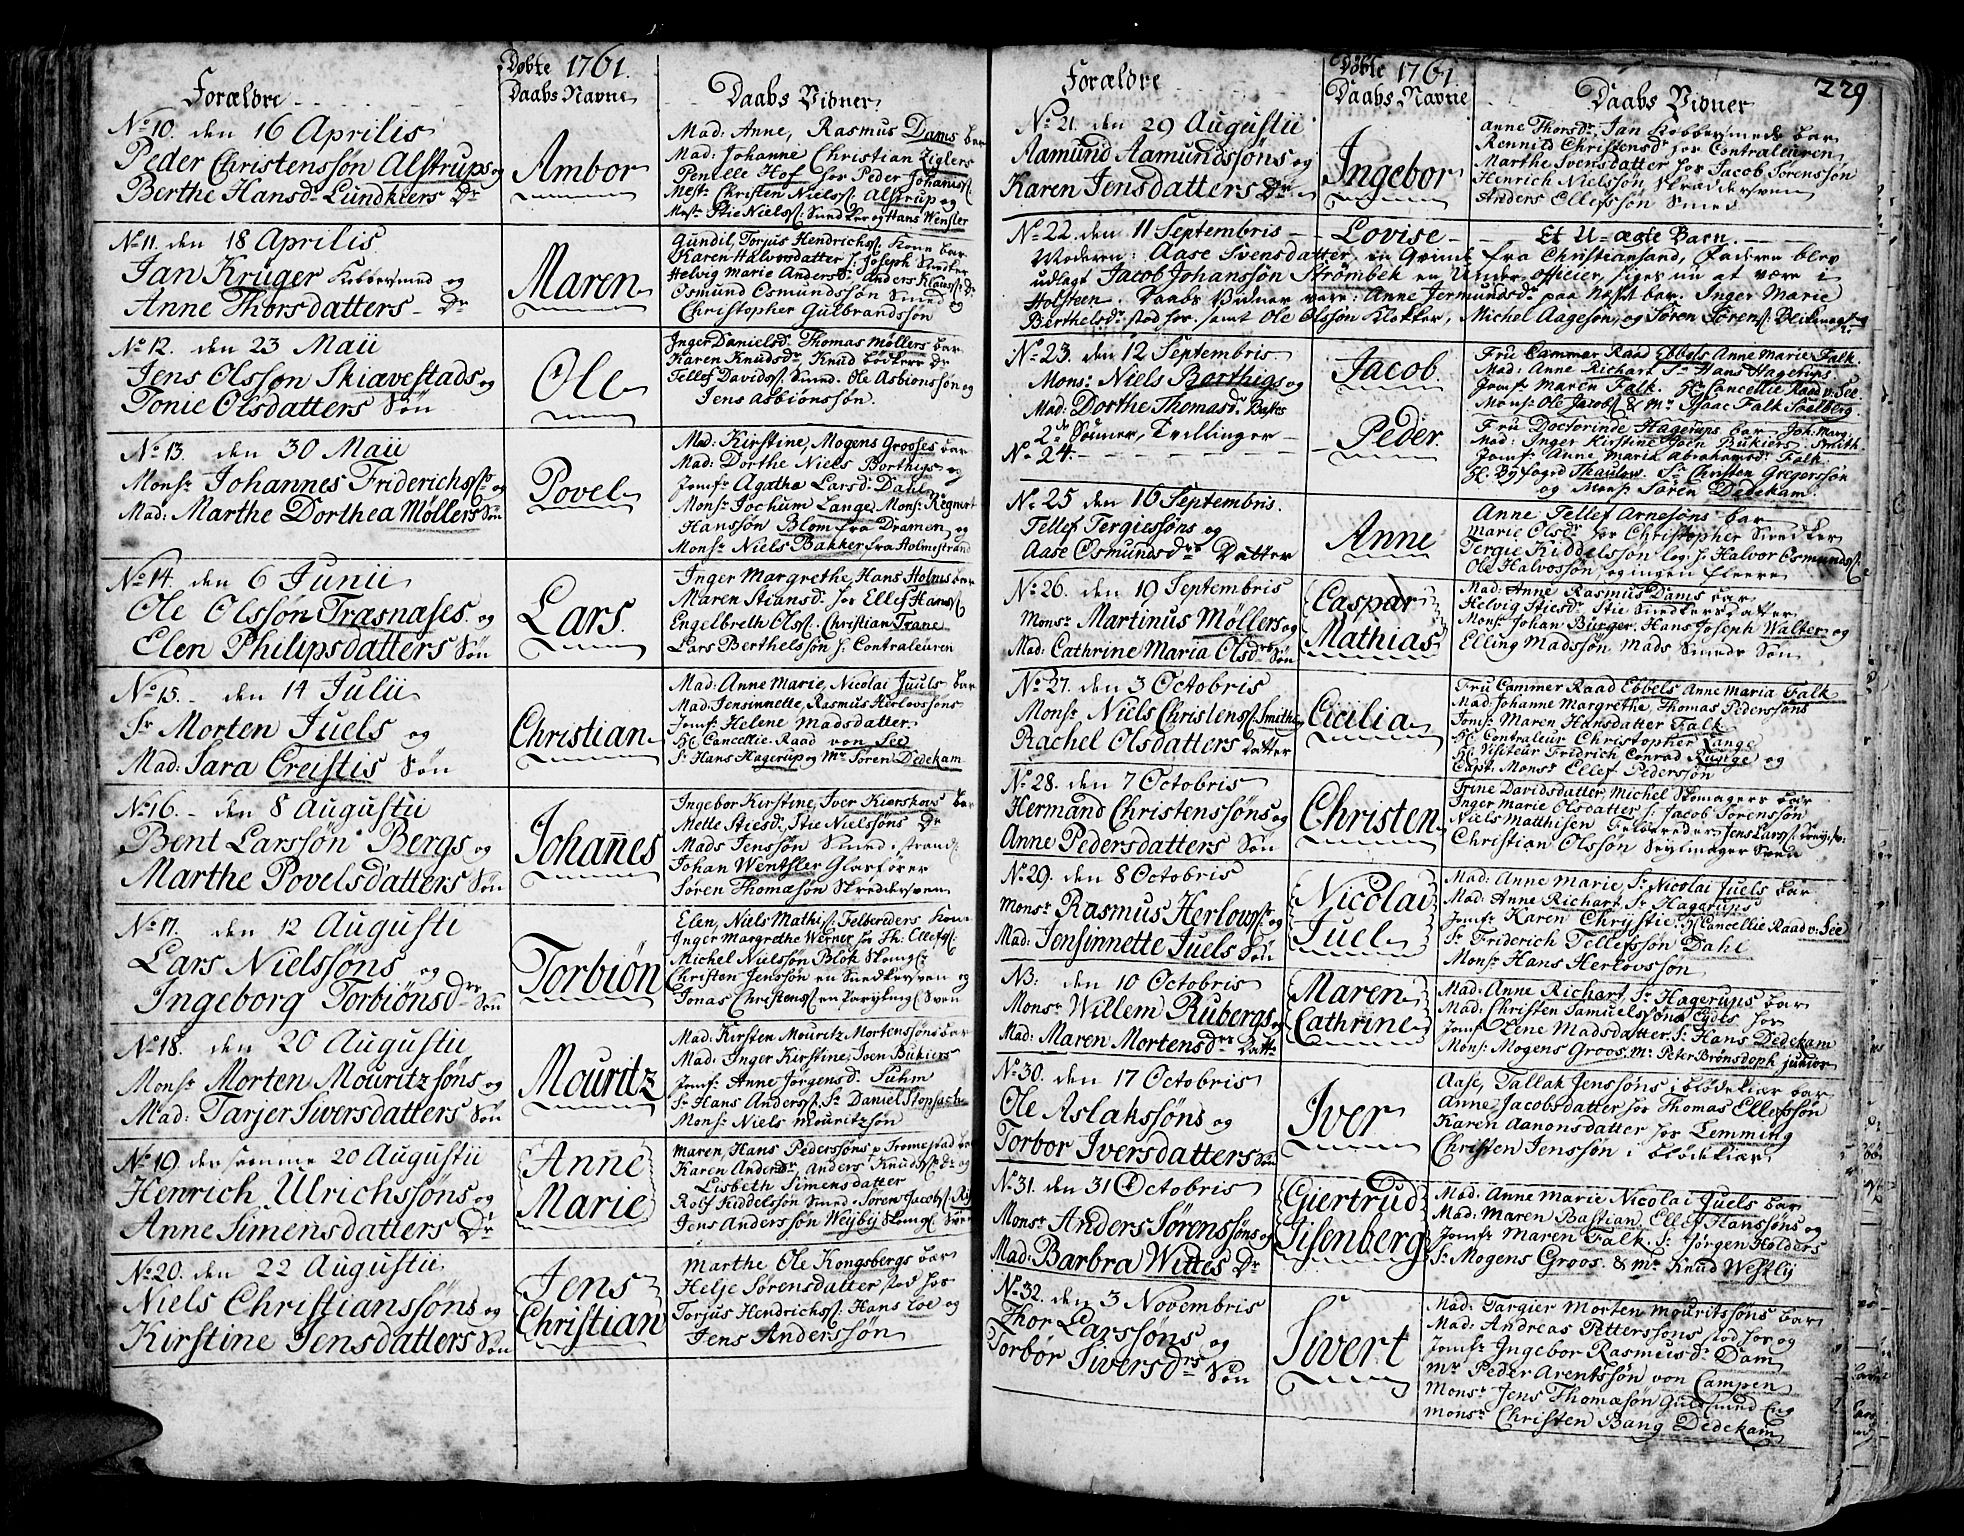 Døbte 1761.
Forældre
Daabs Navne
Daabs Vidner
No 10. den 16 Aprilis
Peder Christenssøn Alstrups og
Berthe Hansd. Lundkiers Dr
Ambor
Mad: Anne, Rasmus Dams bar
Mad: Johanne Christian Ziglers
Pernelle Hof for Peder Johanss
Mest: Christen Nielss: Alstrup og
Mest: Stie Nielss: Snedker og Hans Wensler
No 11. den 18 Aprilis
Jan Krüger Kobbersmed og
Anne Thorsdatters Dr
Maren
Gundil, Torjus Hendrichss. Kone bar
Karen Halvorsdatter f. Joseph Snedker
Helvig Marie Andersd: Anders Klauss: Dr
Osmund Osmundssøn Smed og
Christopher Gulbrandssøn
No 12. den 23 Maii
Jens Olssøn Skiævestads og
Tonie Olsdatters Søn
Ole
Inger Danielsd. Thomas Møllers bar
Karen Knudsdr Knud Bødkers Dr
Tellef Davidss. Smed. Ole Asbiønssøn og
Jens Asbiønssøn.
No 13. den 30 Maii
Monsr Johannes Friderichss. og
Mad: Marthe Dorthea Møllers Søn
Povel
Mad: Kirstine, Mogens Grooses bar
Mad: Dorthe Niels Borthigs og
Jomfr Agatha Larsd: Dahl
Monsr Jochum Lange, Monsr Regnert
Hanssøn Blom fra Dramen, og
Monsr Niels Bakker fra Holmestrand
No 14. den 6 Junii
Ole Olssøn Trasnases og
Elen Philipsdatters Søn
Lars.
Inger Margrethe, Hans Holms bar
Maren Stiansd. for Ellef Hanss
Engelbreth Olss. Christian Trane
Lars Berthelssøn f. Contraleuren
No 15. den 14 Julii
Sr Morten Juels og
Mad: Sara Creistis Søn
Christian
Mad: Anne Marie, Nicolai Juuls bar
Mad: Jensinnette, Rasmus Herlovssøns
Jomfr Helene Madsdatter
Hr Cancellie-Raad von See
Sr Hans Hagerup og Mr Søren Dedekam
No 16. den 8 Augustii
Bent Larssøn Bergs og
Marthe Povelsdatters Søn
Johannes
Ingebor Kirstine, Iver Kierskovs bar
Mette Stiesd. Stie Nielssøns Dr
Mads Jenssøn Smed i strand
Johan Wentsler Glarfører
Søren Thomæsøn Skredersven
No 17. den 12 Augusti
Lars Nielssøns og
Ingeborg Torbiønsdr Søn
Torbiøn
Elen, Niels Mathis: Felberiders Kone
Inger Margrethe Werner for Th: Ellefs
Michel Nielssøn Blok Skomr
Christen Jenssøn en Snedkersven og
Jonas Christenss. en Paryckm: Sven
No 18. den 20 Augustii
Monsr Morten Mouritzsøns og
Mad: Tarjer Siversdatters Søn
Mouritz
Mad: Kirsten Mouritz Mortenssøns bar
Mad: Inger Kirstine, Joen Bukiers
Jomfr Anne Jørgensd. Suhm
Sr Hans Anderss. Sr Daniel
Monsr Niels Mouritzsøn
No 19. den samme 20 Augustii
Henrich Ulrichssøns og
Anne Simensdatters Dr
Anne
Marie
Maren, Hans Pederssøns p Tromestad bar
Karen Andersdr, Anders Knudss: Dr og
Lisbeth Simensdatter
Rolf Kiddelssøn Smed. Søren Jacobs.
Jens Anderssøn Weyby Skomr Sven
No 20. den 22 Augustii
Niels Christianssøns og
Kirstine Jensdatters Søn
Jens
Christian
Marthe Ole Kongsbergs bar
Helje Sørensdatter stod hos
Torjus Hendrichss. Hans Loe og
Jens Anderssøn
229
Døbte 1761
Forældre
Daabs Navne
Daabs Vidner
No 21. den 29 Augustii
Aamund Aamundssøns og
Karen Jensdatters Dr
Ingebor
Anne Thorsdr, Jan Kobbersmeds bar
Rennild Christensdr for Contraleuren
Marthe Svensdatter for Jacob Sørenssøn
Henrich Nielssøn Skreddersven
Anders Ellefssøn Smed
No 22. den 11 Septembris Lovise Et U-ægte Barn.
Moderen: Aase Svensdatter, en Qvinde fra Christiansand, Faderen blev
udlagt Jacob Johanssøn Strømbek en Under officier, siges nu at være i
Holsteen. Daabs Vidner vare: Anne Jermundsdr paa Næset bar. Inger Marie
Berthelsdr stod hos. samt Ole Olssøn Klokker, Michel Aagesøn, og Søren Sørens
No 23. den 12 Septembris.
Monsr Niels Borthigs og
Mad: Dorthe Thomasd. Basses
2de Sønner, Tvillinger
No 24.
Jacob
Peder.
Fru Cammer Raad Ebbels Anne Marie Falk.
Mad: Anne Richart Sr Hans Hagerups
Jomfr Maren Falk. Hr Cancellie Raad v. See
Monsr Ole Jacobs & Mr Isaac Falk Soelberg
Fru Doctorinde Hagerups bar Joh: Marg:
Mad: Inger Kirstine Joen Bukiers Smith
Jomfr Anne Maria Abrahamsdr Falk
Hr Byfoged Thaulow. Sr Christen Gregerssøn
og Monsr Søren Dedekam.
No 25 den 16 Septembris.
Tellef Tergiessøns og
Aase Osmundsdrs Datter
Anne
Anne Tellef Arnesøns bar
Marie Olsdr for Christopher Snedker
Tergie Kiddelssøn log: f. Halvor Osmundss.
Ole Halvorsøn, og ingen fleere
No 26. den 19 Septembris
Monsr Martinus Møllers og
Mad: Cathrine Maria Olsdrs Søn
Caspar
Mathias
Mad: Anne Rasmus Dams bar
Helvig Stiesd. Stie Snedkers Datter
Monsr Johan Bürger. Hans Joseph Walter og
Elling Madssøn, Mads Smeds Søn
No 27. den 3 Octobris
Monsr Niels Christenss. Smiths
Rachel Olsdatters Datter
Cicilia
Fru Cammer Raad Ebbels Anne Maria Falk
Mad: Johanne Margrethe, Thomas Pederssøns
Jomfr Maren Hansdatter Falk
Hr Contraleur Christopher Lange
Hr Visiteur Fridrich Conrad Runge og
Capt: Monsr Ellef Pederssøn
No 28. den 7 Octobris
Hermand Christenssøns og
Anne Pedersdatters Søn
Christen
Trine Davidsdatter, Michel Skomagers bar
Inger Marie Olsdatter f. Jacob Sørenssøn
Niels Matthisen Felbereder, Jens Larss.
Christian Olssøn Seylmager Sven
No 29. den 8 Octobris
Monsr Rasmus Herlovss og
Mad: Jensinnette Juels Søn
Nicolai
Juel
Mad: Anne Marie, Sr Nicolai Juels bar
Mad: Anne Richart, Sr Hagerups
Jomfr Karen Chrystie. Hr Cancellie Raad v: See
Sr Friderich Tellefssøn Dahl
Monsr Hans Herlovssøn
N3: den 10 Octobris
Monsr Willem Rubergs og
Mad: Maren Mortensdrs Datter
Maren
Cathrine
Mad: Anne Richart, Sr Hagerups bar
Mad: Christen Samuelssøns Eydes hos
Jomfr Lene Madsdatter. Sr Hans Dedekam
Monsr Mogens Groos. Mr Peter Brønsdoph junior
No 30. den 17 Octobris
Ole Aslakssøns og
Torbor Iversdatters Søn
Iver
Aase, Tallak Jenssøns i blødekiær bar
Anne Jacobsdatter for Thomas Ellefssøn
Karen Aanonsdatter for Lemming
Christen Jenssøn i blødekiær
No 31. den 31 Octobris
Monsr Anders Sørenssøns og
Mad: Barbra Wittes Dr
Giertrud
Sisenberg
Mad: Anne Marie Nicolai Juels bar
Mad: Maren Bastian, Ellef Hanssøns og
Jomfr Maren Falk. Sr Jørgen Holders
Sr Mogens Groos. & Mr Knud Westly
No 32. den 3 Novembris
Thor Larssøns og
Torbør Siversdrs Søn
Sivert
Mad: Targier Morten Mouritssøns bar
Mad: Andreas Petterssøns stod hos og
Jomfr Ingebor Rasmusdr Dam
Mr Peder Arentssøn von Campen
Monsr Jens Thomæsøn Guldsmed Eng
Monsr Christen Bang Dedekam